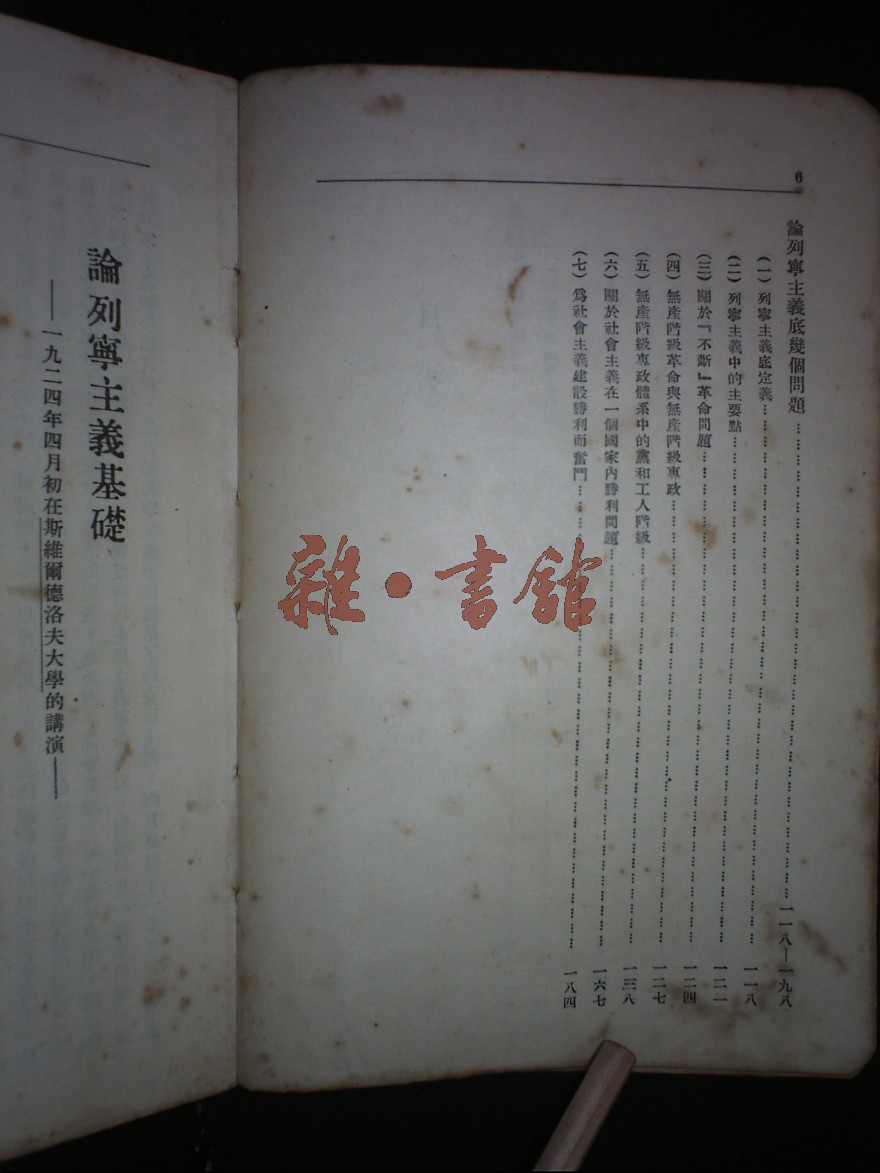 6
論列寧主義底幾個問題……一一八—一九八
(一) 列寧主義底定義……一一八
(二) 列寧主義中的主要點……一二一
(三) 關於『不斷』革命問題……一二四
(四) 無產階級革命與無產階級專政……一二七
(五) 無產階級專政體系中的黨和工人階級……一三八
(六) 關於社會主義在一個國家內勝利問題……一六七
(七) 爲社會主義建設勝利而奮鬥……一八四
論列寧主義基礎
——一九二四年四月初在斯維爾德洛夫大學的講演——
雜·書館